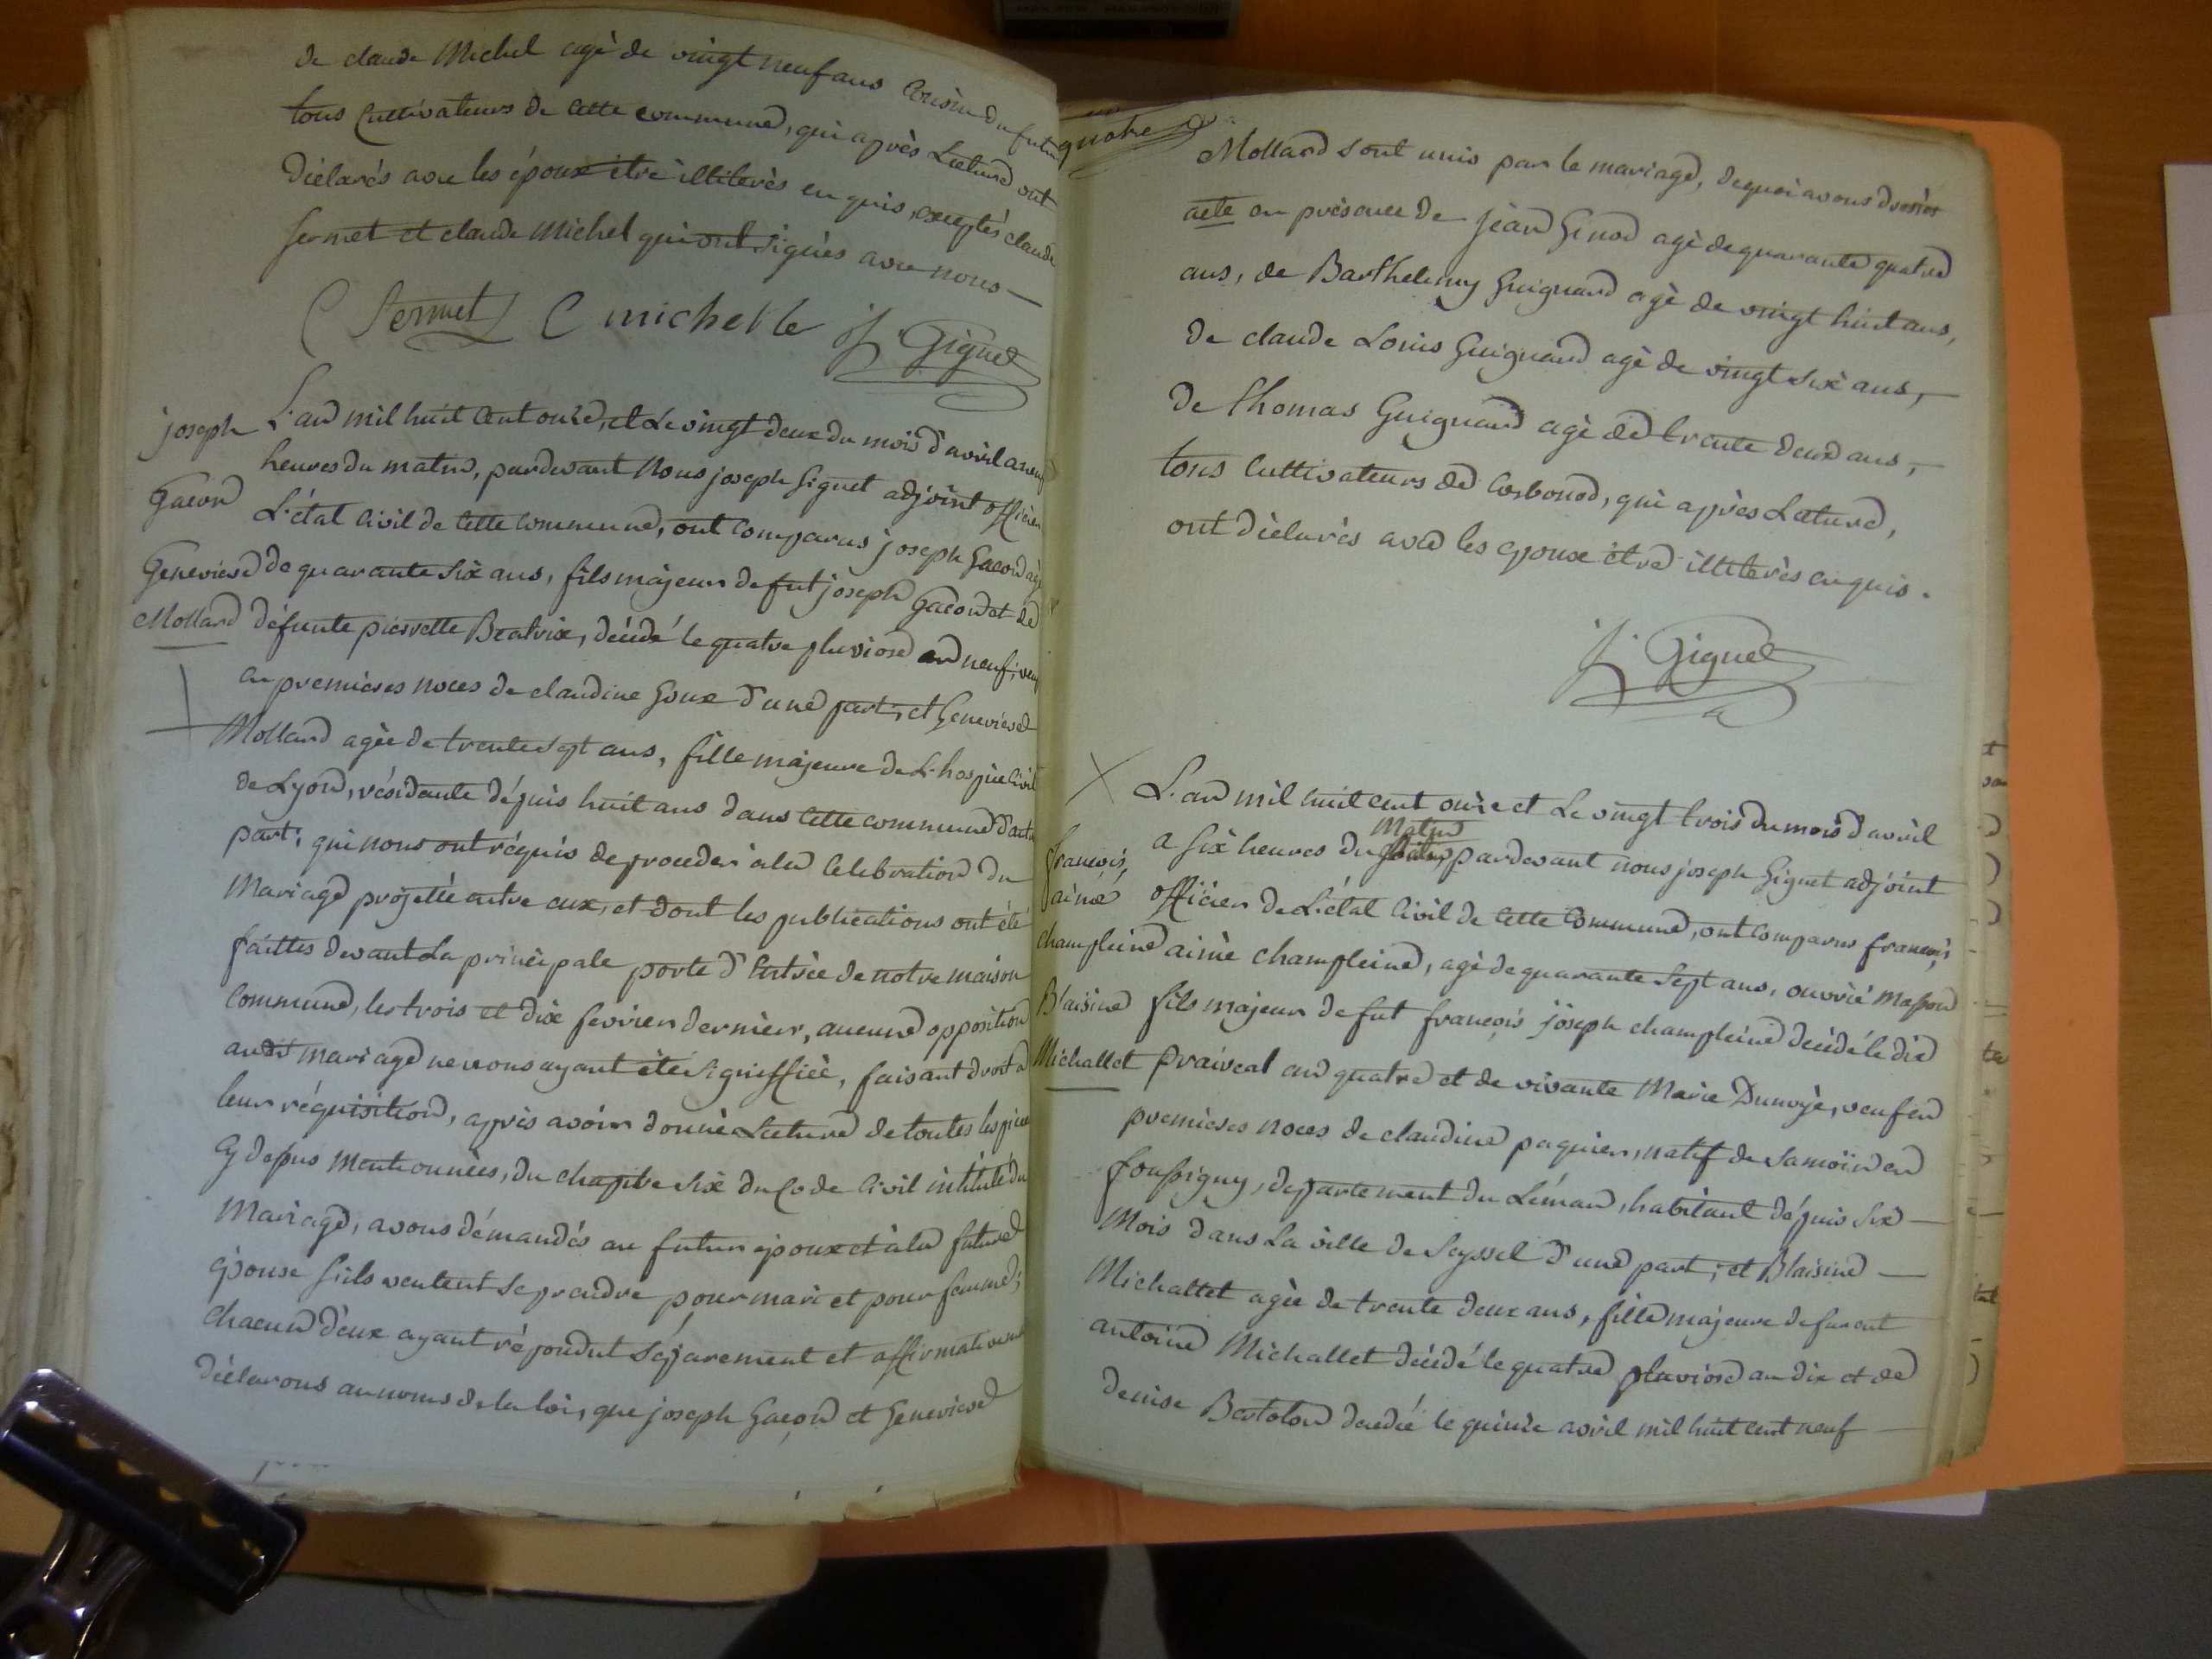 de claude Michel agè de vingt neuf ans Cousin du futur
tous Cultivateurs de Cette commune, qui après Lecture ont
dèclarés avec les époux être illiterès enquis, exceptés claude
Sermet et claude Michel qui ont signès avec nous —
C Sermet C michel le J Giguet
Joseph
Gacon
Genevieve
Mollard
L'an mil huit Cent onze, et Le vingt deux du mois d'avril a neuf
heures du matin, pardevant Nous joseph Giguet adjoint officier
L'état Civil de Cette Commune, ont Comparus joseph Gacon agè
de quarante Six ans, fils majeur de fut joseph Gacon et de
défunte pierrette Beatrix, décédé le quatre pluviose an neuf, veuf
en premieres noces de claudine Goux d'une part, et Genevieve
Mollard agèe de trente sept ans, fille majeure de L'hospice Civil
de Lyon, résidante dépuis huit ans dans Cette commune d'autre
part; qui nous ont réquis de proceder à la Celebration du
Mariage projettè entre eux, et dont les publications ont été
faittes devant La principale porte d'Entrèe de notre maison
Commune, les trois et dix fevrier dernier, aucune opposition
audit mariage ne nous ayant été signiffièe, faisant droit a
leur réquisition, après avoir donnè Lecture de toutes les pièces
Cy dessus Mentionnèes, du chapitre Six du Code Civil intitulé du
Mariage, avons démandés au futur èpoux et à la future
èpouse s'ils veulent se prendre pour mari et pour femme;
Chacun d'eux ayant rèpondut séparement et affirmativement
dèclarons au noms de la loi, que joseph Gacon et Genevieve
Mollard sont unis par le mariage, dequoi avons dressés
acte en prèsence de jean Genod agè de quarante quatre
ans, de Barthelemy Guignard agè de vingt huit ans,
de claude Louis Guignard agè de vingt six ans,
de thomas Guignard agè de trente deux ans,
tous Cultivateurs de Corbonod, qui après Lecture,
ont dèclarès avec les epoux être illiterès enquis.
J. Giguet
françois,
aimé
champleine
Blaisine
Michallet
L'an mil huit cent onze et Le vingt trois du mois d'avril
Matin
a six heures du pardevant nous joseph Giguet adjoint
officier de L'état Civil de Cette Commune, ont Comparus françois,
aimè champleine, agè de quarante Sept ans, ouvriè Masson
fils majeur de fut françois joseph champleine decèdé le dix
praireal an quatre et de vivante Marie Dunoyè, veuf en
premieres noces de claudine paquier, natif de Samoïn en
foussigny, departement du Léman, habitant dépuis six —
Mois dans La ville de Seyssel d'une part; et Blaisine —
Michallet agèe de trente deux ans, fille majeure de furent
antoine Michallet décédé le quatre pluviose an dix et de
denise Bertolon decedée le quinze avril mil huit cent neuf —